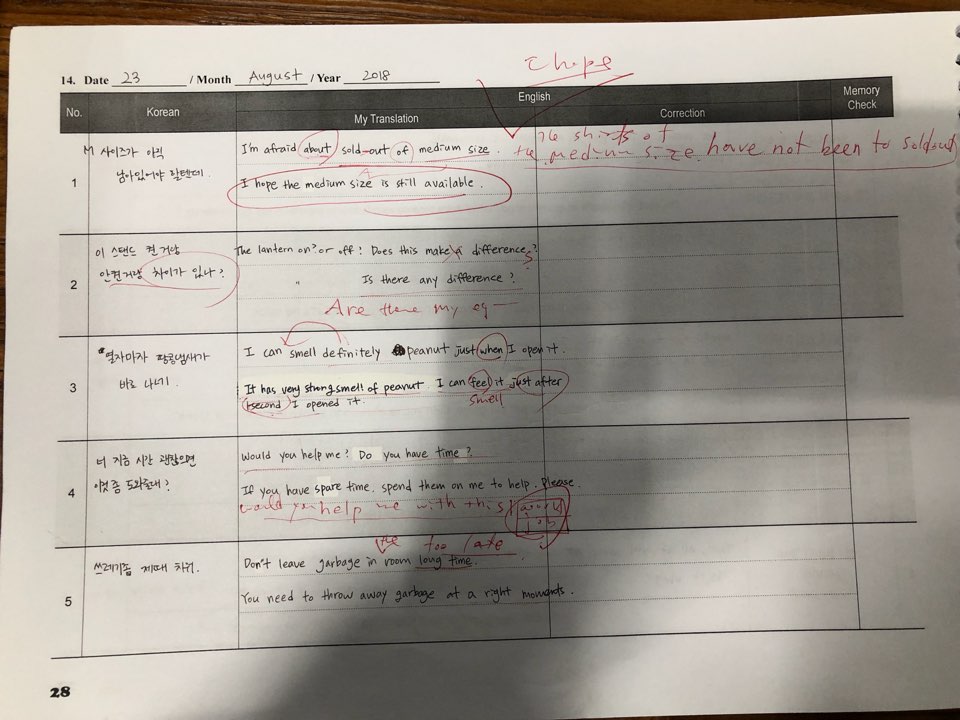 I hope
14. Date 23 / Month August / Year 2018
No. Korean English Memory Check
My Translation Correction
M 사이즈가 아직
남아있어야 할텐데.
1
I'm afraid about sold-out of medium size.
I hope the medium size is still available.
the shirts of
the medium size have not been to soldout
이 스탠드 켠 거랑
안켠거랑 차이가 있나?
2
The lantern on? or off? Does this make a difference?
s
" Is there any difference?
Are there any
열자마자 땅콩냄새가
바로 나네!
3
I can smell definitely peanut just when I open it.
It has very strong smell of peanut. I can feel it just after
1second I opened it.
smell
너 지금 시간 괜찮으면
이것 좀 도와줄래?
4
Would you help me? Do you have time?
If you have spare time, spend them on me to help. Please.
would you help me with this
work
job
쓰레기좀 제때 치워.
5
the too late
Don't leave garbage in room long time.
You need to throw away garbage at a right moments.
28